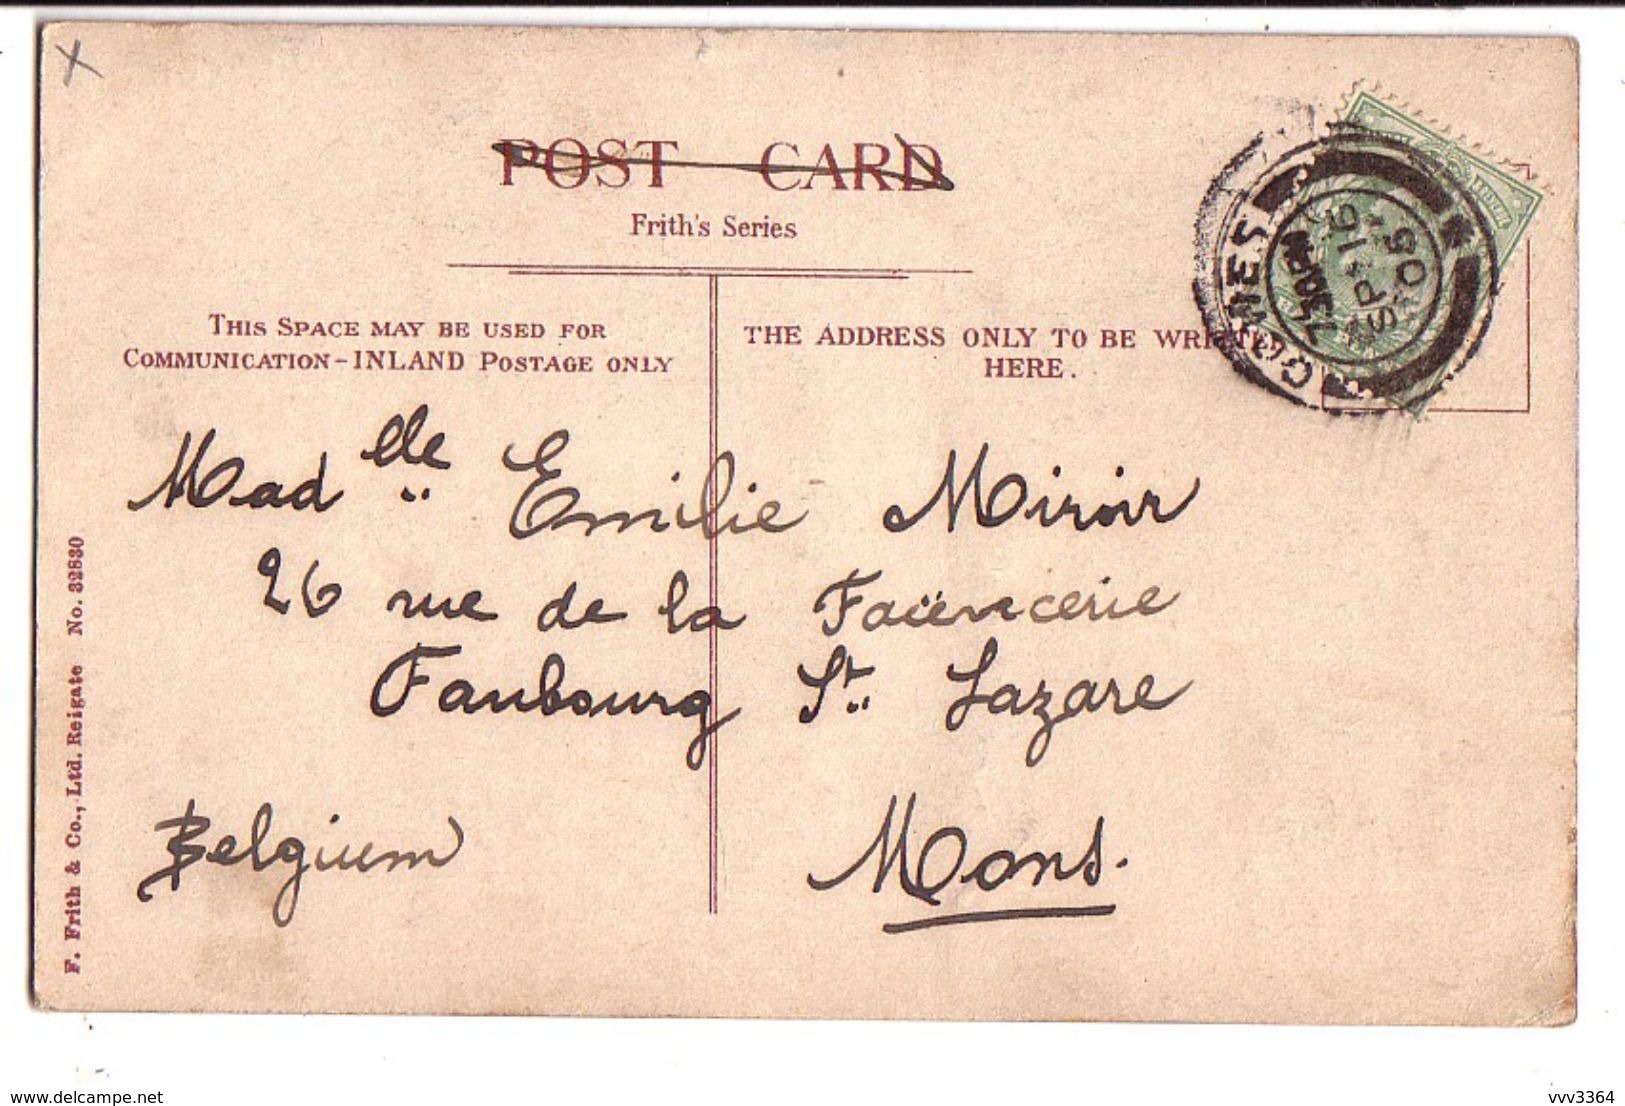 POST CARD
Frith's Series
THIS SPACE MAY BE USED FOR
COMMUNICATION-INLAND POSTAGE ONLY
THE ADDRESS ONLY TO BE WRITTEN
HERE.
COWES
7 30 PM
SP 16
05
Madelle Emilie Miroir
26 rue de la Faïencerie
Faubourg St. Lazare
Belgium Mons.
F. Frith & Co., Ltd. Reigate No. 32830
www.delcampe.net
vvv3364